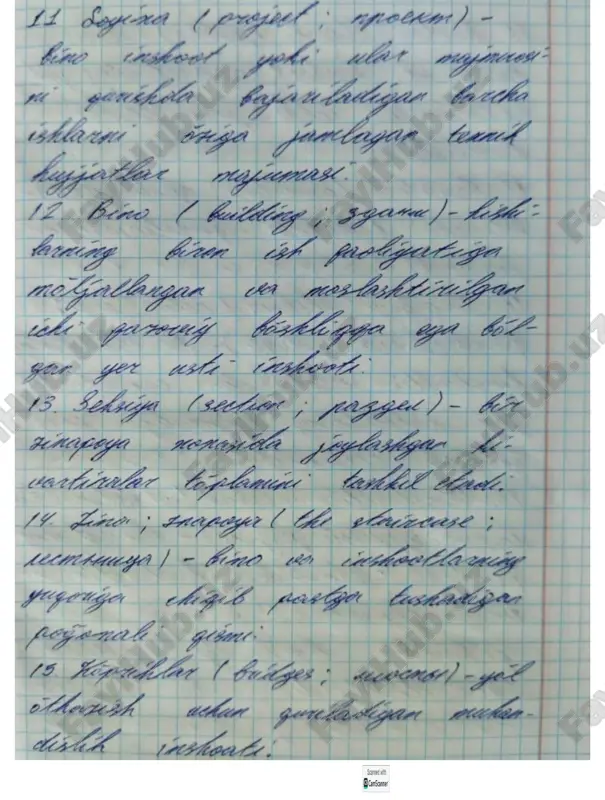 11. Loyixa (project; проект) -
bino inshoot yoki ular majmuasi-
ni qurishda bajariladigan barcha
ishlarni õziga jamlagan texnik
hujjatlar majumasi.
12. Bino (building; здание) - kishi-
larning biron ish faoliyatiga
mõljallangan va moslashtirilgan
ichi fazoviy bõshliqqa ega bõl-
gan yer usti inshooti.
13. Seksiya (section; раздел) - bir
zinapoya xonasida joylashgan k-
vartiralar tõplamini tashkil etadi.
14. Zina; znapoya (the staircase;
лестница) - bino va inshootlarning
yuqoriga chiqib pastga tushadigan
poğonali qismi.
15. Kõpriklar (bridges; мосты) - yõl
õtkazish uchun quriladigan muhan-
dislik inshooti.
FayiHub.uz
Scanned with
CamScanner